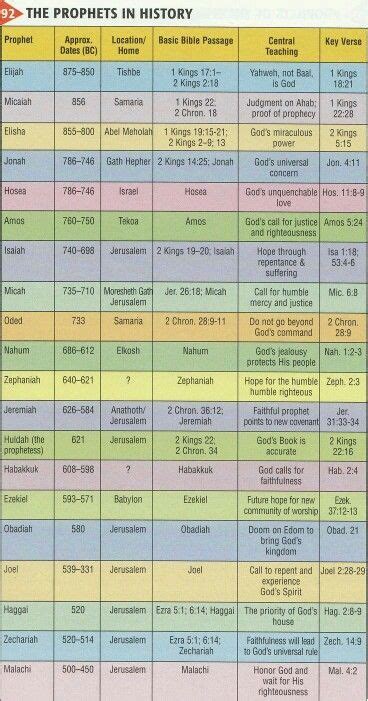 92 THE PROPHETS IN HISTORY
Prophet Approx. Dates (BC) Location/ Home Basic Bible Passage Central Teaching Key Verse
Elijah 875–850 Tishbe 1 Kings 17:1– 2 Kings 2:18 Yahweh, not Baal, is God 1 Kings 18:21
Micaiah 856 Samaria 1 Kings 22; 2 Chron. 18 Judgment on Ahab; proof of prophecy 1 Kings 22:28
Elisha 855–800 Abel Meholah 1 Kings 19:15-21; 2 Kings 2–9; 13 God's miraculous power 2 Kings 5:15
Jonah 786–746 Gath Hepher 2 Kings 14:25; Jonah God's universal concern Jon. 4:11
Hosea 786–746 Israel Hosea God's unquenchable love Hos. 11:8-9
Amos 760–750 Tekoa Amos God's call for justice and righteousness Amos 5:24
Isaiah 740–698 Jerusalem 2 Kings 19–20; Isaiah Hope through repentance & suffering Isa 1:18; 53:4-6
Micah 735–710 Moresheth Gath Jerusalem Jer. 26:18; Micah Call for humble mercy and justice Mic. 6:8
Oded 733 Samaria 2 Chron. 28:9-11 Do not go beyond God's command 2 Chron. 28:9
Nahum 686–612 Elkosh Nahum God's jealousy protects His people Nah. 1:2-3
Zephaniah 640–621 ? Zephaniah Hope for the humble humble righteous Zeph. 2:3
Jeremiah 626–584 Anathoth/ Jerusalem 2 Chron. 36:12; Jeremiah Faithful prophet points to new covenant Jer. 31:33-34
Huldah (the prophetess) 621 Jerusalem 2 Kings 22; 2 Chron. 34 God's Book is accurate 2 Kings 22:16
Habakkuk 608–598 ? Habakkuk God calls for faithfulness Hab. 2:4
Ezekiel 593–571 Babylon Ezekiel Future hope for new community of worship Ezek. 37:12-13
Obadiah 580 Jerusalem Obadiah Doom on Edom to bring God's kingdom Obad. 21
Joel 539–331 Jerusalem Joel Call to repent and experience God's Spirit Joel 2:28-29
Haggai 520 Jerusalem Ezra 5:1; 6:14; Haggai The priority of God's house Hag. 2:8-9
Zechariah 520–514 Jerusalem Ezra 5:1; 6:14; Zechariah Faithfulness will lead to God's universal rule Zech. 14:9
Malachi 500–450 Jerusalem Malachi Honor God and wait for His righteousness Mal. 4:2